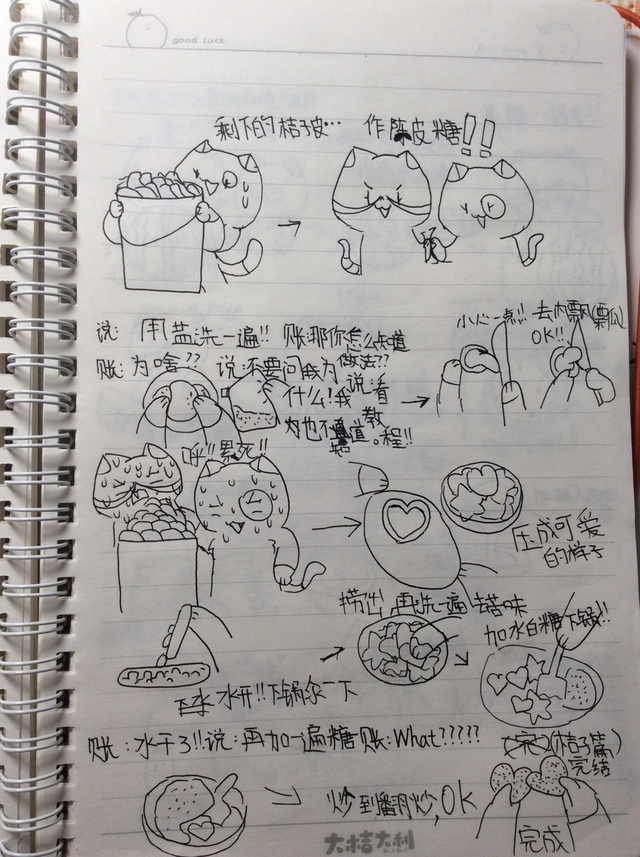 good luck
剩下的桔子皮… 作陈皮糖!!
说: 用盐洗一遍!! 账:那你怎么知道
做法??
账:为啥?? 说:不要问我为
什么!我
说:看
教
程!!
小心一点!! 去内瓢(瓢瓜)
OK!!
呼!!累死!!
压成可爱
的样子
捞出 再洗一遍 去苦味
加水白糖下锅!!
水开!!下锅
一下
账:水干了!!说:再加一遍糖 账:What?????
(桔子篇)
完结
炒到翻炒,OK
完成
大桔大利